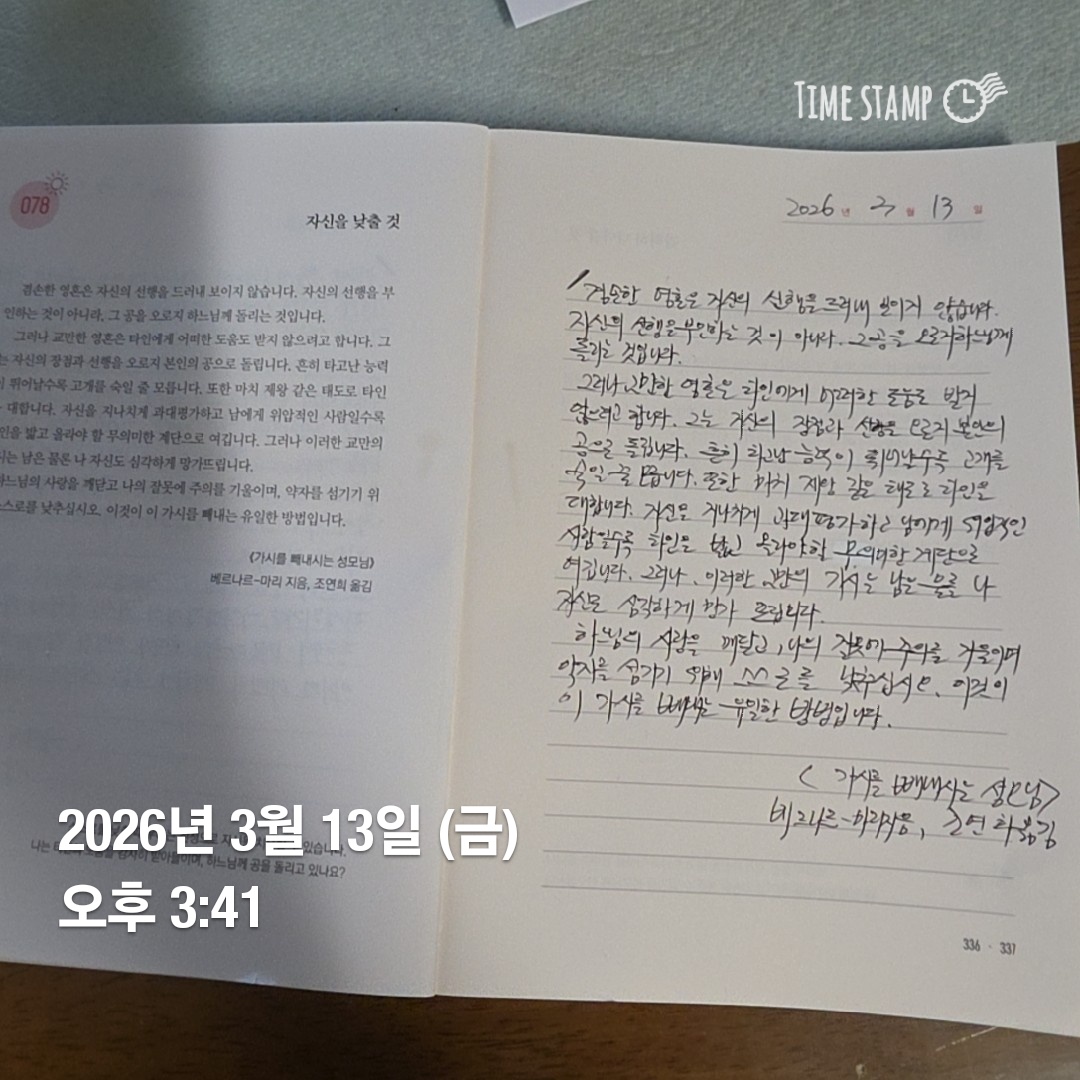 TIME STAMP
078
자신을 낮출 것
겸손한 영혼은 자신의 선행을 드러내 보이지 않습니다. 자신의 선행을 부
인하는 것이 아니라, 그 공을 오로지 하느님께 돌리는 것입니다.
그러나 교만한 영혼은 타인에게 어떠한 도움도 받지 않으려고 합니다. 그
는 자신의 장점과 선행을 오로지 본인의 공으로 돌립니다. 흔히 타고난 능력
이 뛰어날수록 고개를 숙일 줄 모릅니다. 또한 마치 제왕 같은 태도로 타인
대합니다. 자신을 지나치게 과대평가하고 남에게 위압적인 사람일수록
인을 밟고 올라야 할 무의미한 계단으로 여깁니다. 그러나 이러한 교만의
시는 남은 물론 나 자신도 심각하게 망가뜨립니다.
하느님의 사랑을 깨닫고 나의 잘못에 주의를 기울이며, 약자를 섬기기 위
스스로를 낮추십시오. 이것이 이 가시를 빼내는 유일한 방법입니다.
《가시를 빼내시는 성모님》
베르나르-마리 지음, 조연희 옮김
있습니다.
나는 감사히 받아들이며, 하느님께 공을 돌리고 있나요?
2026년 3월 13일 (금)
오후 3:41
2026년 3월 13일
겸손한 영혼은 자신의 선행을 드러내 보이지 않습니다.
자신의 선행을 부인하는 것이 아니라. 그 공을 오로지 하느님께
돌리는 것입니다.
그러나 교만한 영혼은 타인에게 어떠한 도움도 받지
않으려고 합니다. 그는 자신의 장점과 선행을 오로지 본인의
공으로 돌립니다. 흔히 타고난 능력이 뛰어날수록 고개를
숙일 줄 모릅니다. 또한 마치 제왕 같은 태도로 타인을
대합니다. 자신을 지나치게 과대평가하고 남에게 위압적인
사람일수록 타인을 밟고 올라야 할 무의미한 계단으로
여깁니다. 그러나, 이러한 교만의 가시는 남은 물론 나
자신도 심각하게 망가
하느님의 사랑을 깨닫고, 나의 잘못에 주의를 기울이며
약자를 섬기기 위해 스스로를 낮추십시오. 이것이
이 가시를 빼내는 유일한 방법입니다.
<가시를 빼내시는 성모님>
베르나르-마리지음, 조연희 옮김
336 · 337